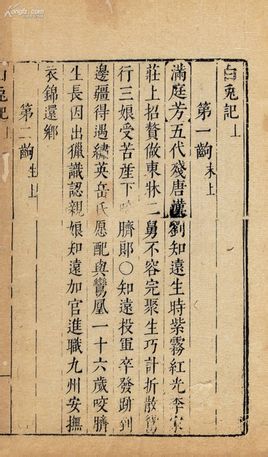 白兎記上
第一齣 末上
滿庭芳五代殘唐漢劉知遠生時紫霧紅光李家
莊上招贅做東牀二舅不容完聚生巧計折散鴛
行三娘受苦産下咬臍郎〇知遠投軍卒發跡到
邊疆得遇繡英岳氏願配與鸞凰一十六歲咬臍
生長因出獵識認親娘知遠加官進職九州安撫
衣錦還鄉
第二齣 生上